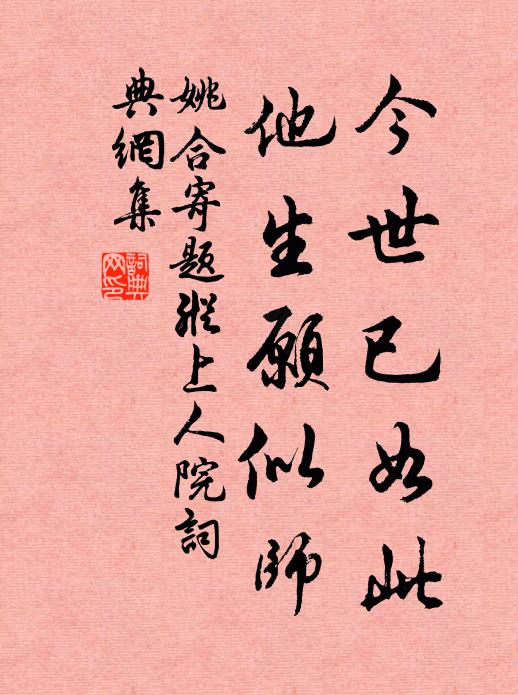 今世已如此
他生願似師
姚合寄題縱上人院詞
典網集
詞典
网印